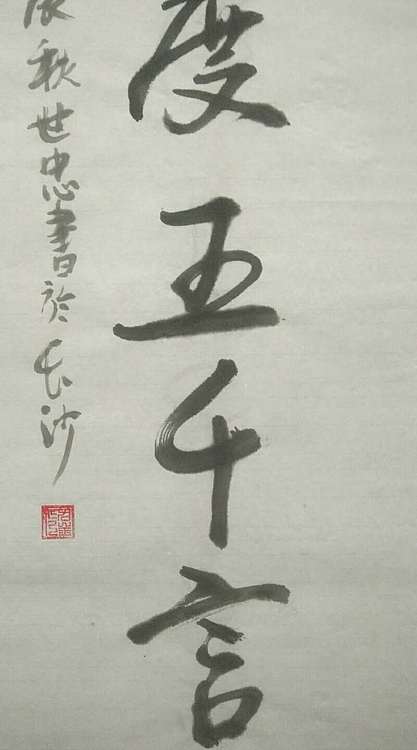 度五千言
秋世忠書於长沙